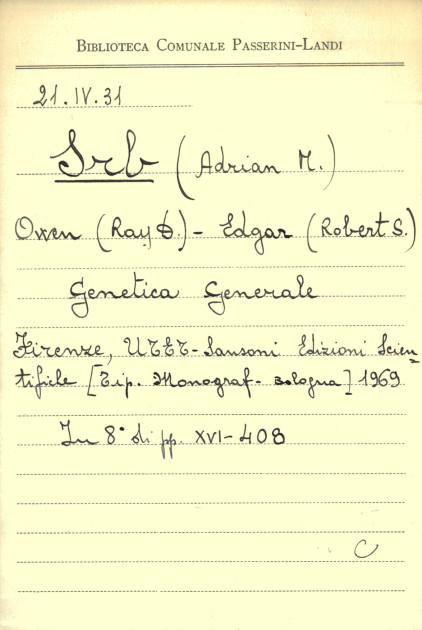 BIBLIOTECA COMUNALE PASSERINI-LANDI
21.IV.31
Srb (Adrian M.)
Owen (Ray D.) - Edgar (Robert S.)
Genetica Generale
Firenze, UTET-Sansoni Edizioni Scien=
tifiche [Tip. Monograf- Bologna] 1969
In 8° di pp. XVI-408
C